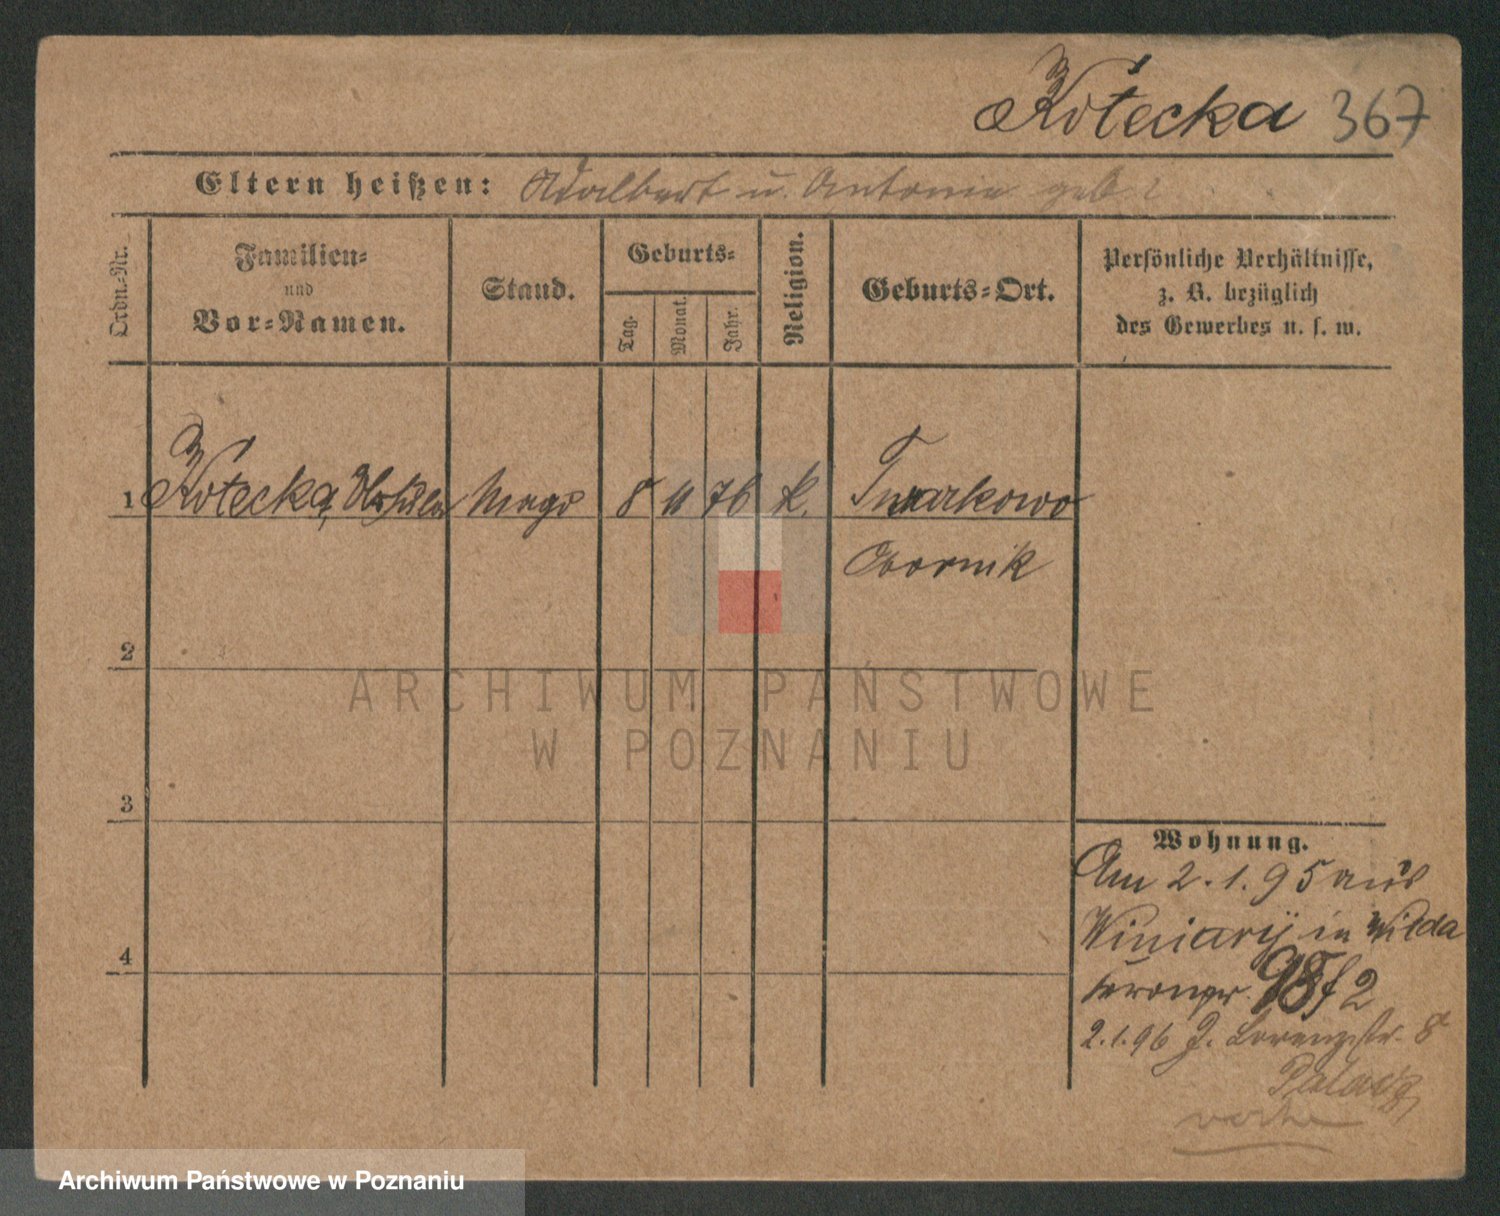 Kotecka 367
Eltern heißen: Adalbert u. Antonie geb. ?
Ordn.-Nr.
Familien-
und
Vor-Namen.
Stand.
Geburts-
Tag.
Monat.
Jahr.
Religion.
Geburts-Ort.
Persönliche Verhältnisse,
z. B. bezüglich
des Gewerbes u. s. w.
1 Kotecka, Magd 8 11 76 k. Twarkowo
Obornik
2
3
4
Wohnung.
Am 2.1.95 aus
Winiary in Wilda
Kronpr. 98 f 2
2.1.96 J. Lorenzstr. 8
ARCHIWUM PAŃSTWOWE
W POZNANIU
Archiwum Państwowe w Poznaniu